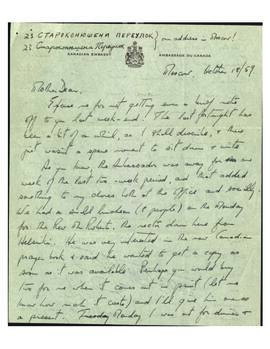 23 СТАРОКОНЮШЕНИ ПЕРЕУЛОК
23 Староконюшени Переулок
our address in Moscow!
CANADIAN EMBASSY
AMBASSADE DU CANADA
Moscow, October 18/59
Mother Dear,
Excuse me for not getting even a brief note
off to you last week-end. The last fortnight has
been a bit of a whirl, as I shall describe, & there
just wasn't a spare moment to sit down & write
As you know, the Ambassador was away for one
week of the last two-week period, and that added
something to my chores both at the office and socially.
We had a small luncheon (8 people) on the Monday
for the Rev. Mr Roberts, the rector down here from
Helsinki. He was very interested in the new Canadian
prayer book & said he wanted to get a copy as
soon as it was available. Perhaps you would buy
two for me when it comes out in print (let me
know how much it costs) and I'll give him one as
a present. Tuesday I was out for dinner &